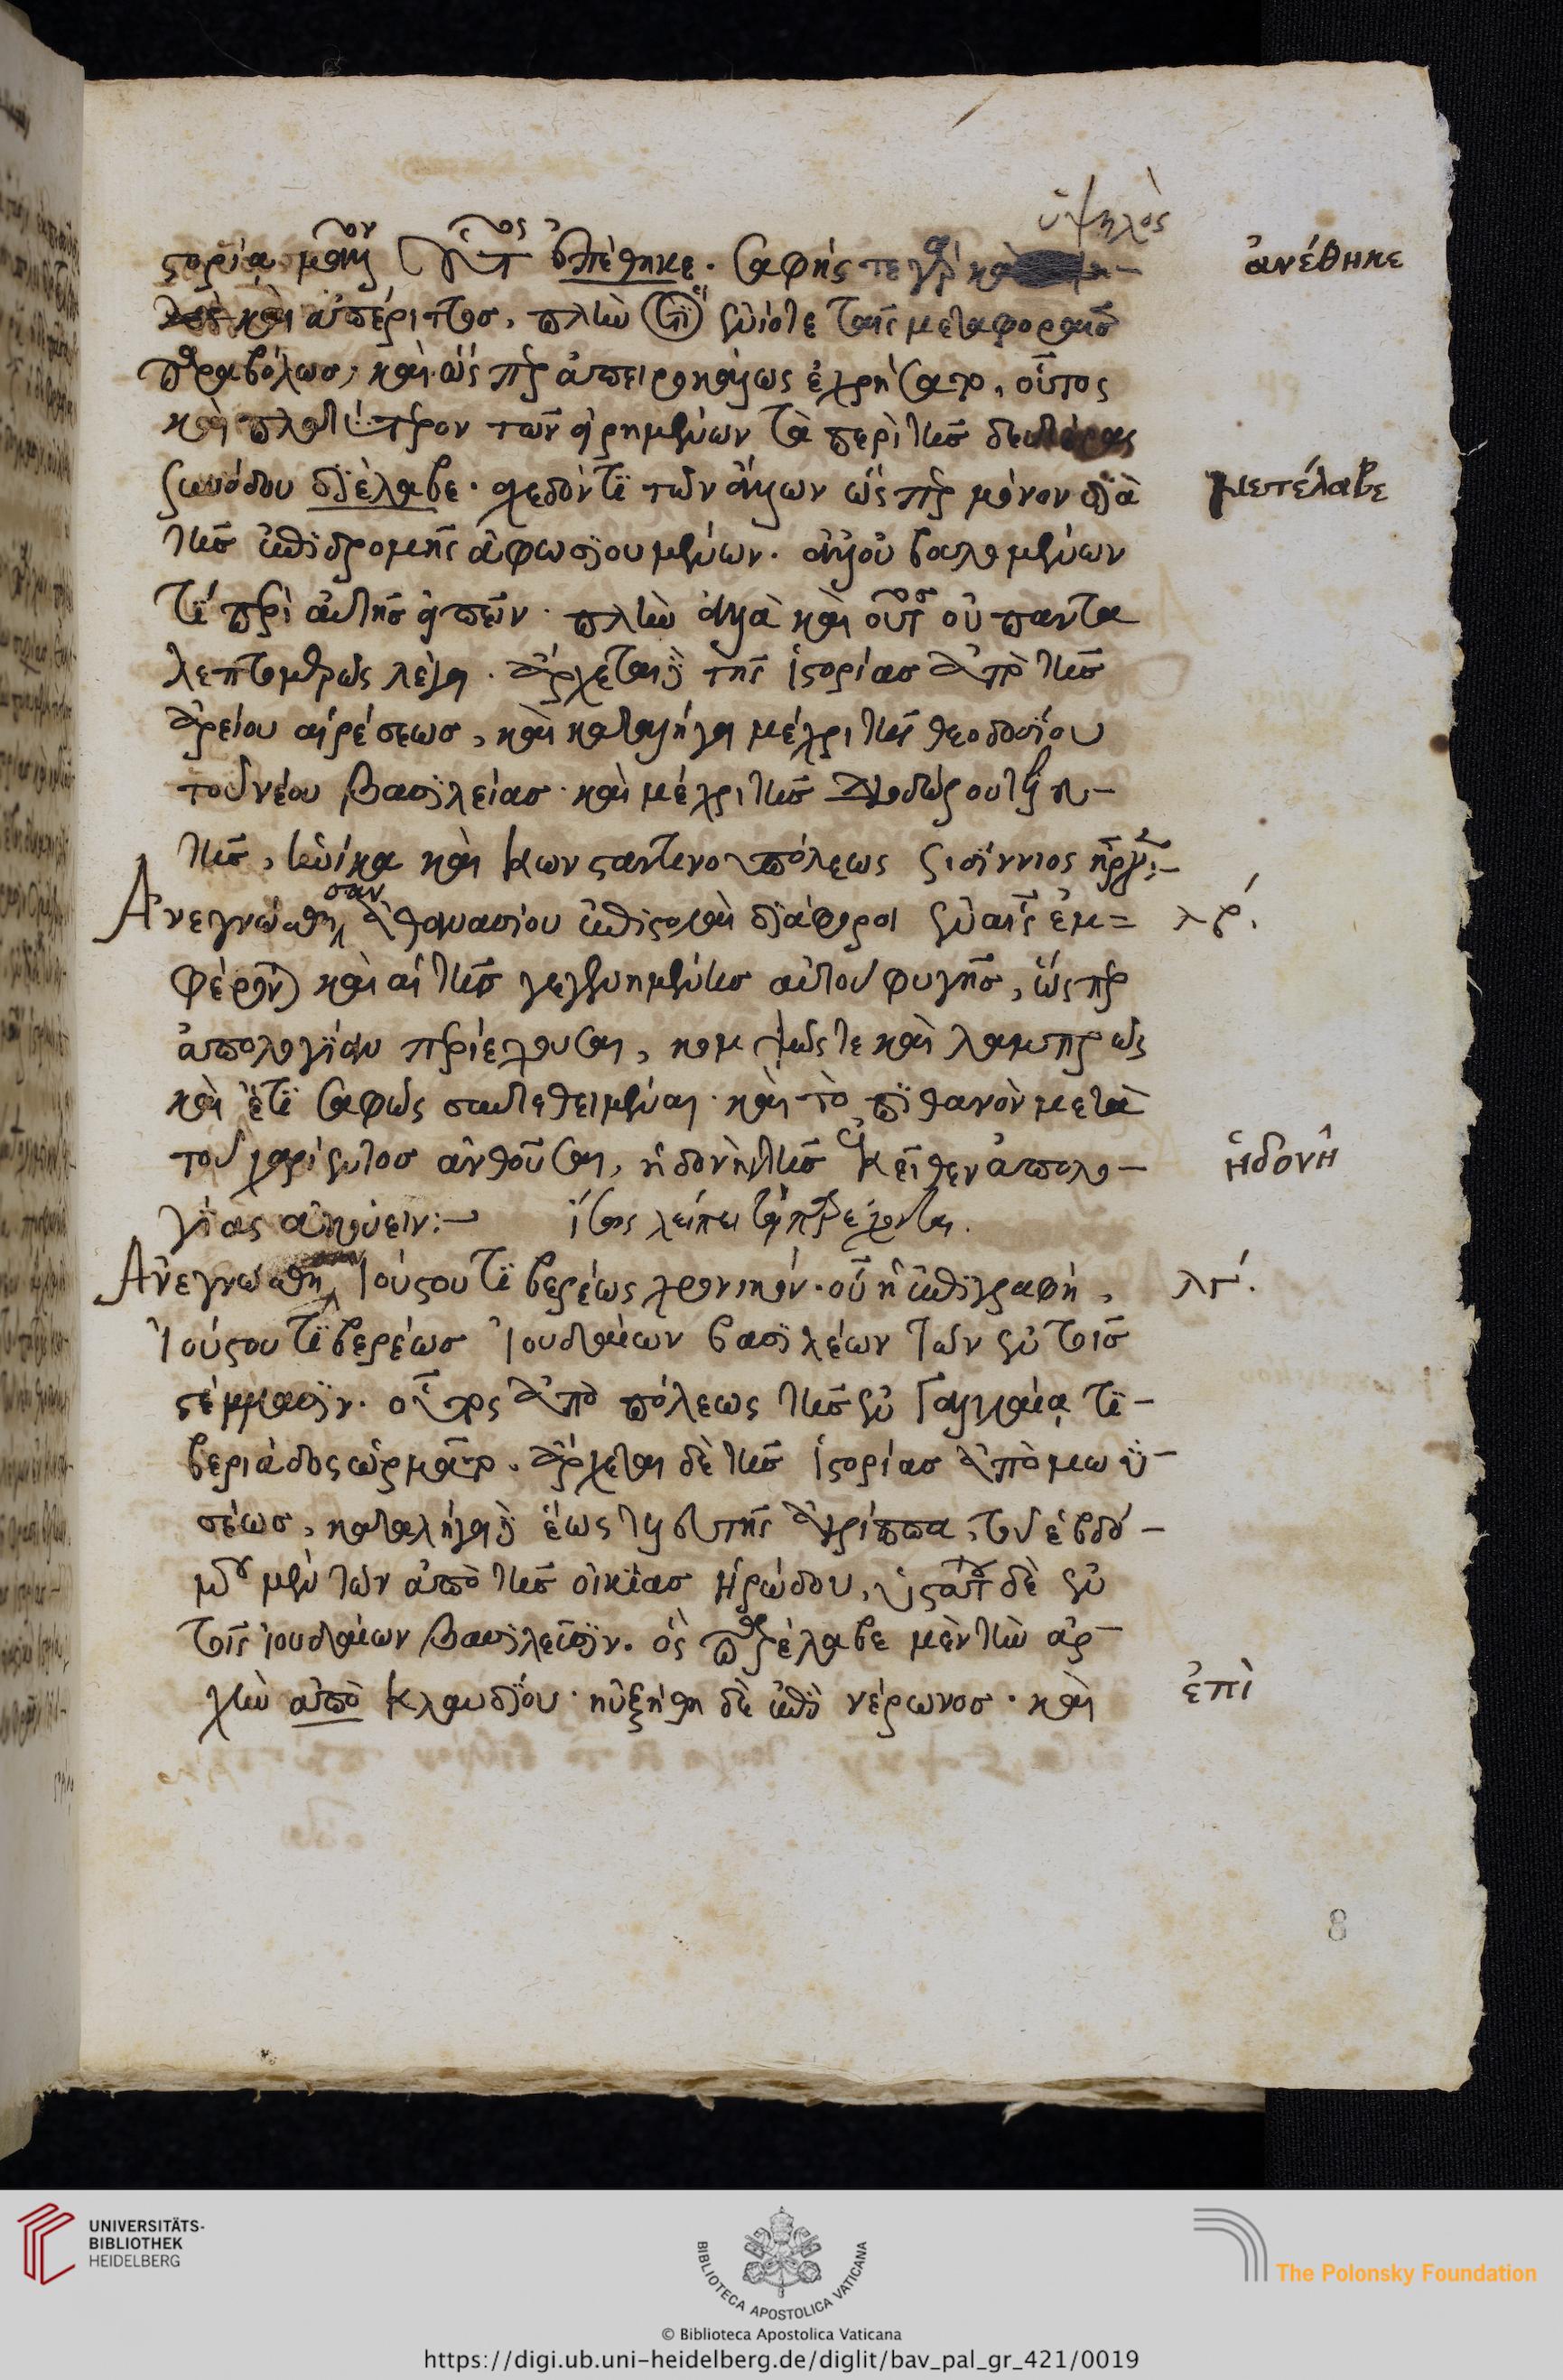 ὑψηλὸς
στορία μᾶλλον οὗτος ἐπέθηκε. σαφής τε γὰρ καὶ
ἀνέθηκε
καὶ ἀπέριττος, πλὴν ἐνίοτε ταῖς μεταφοραῖς
παραβόλως, καὶ ὥσπερ ἀπειροκάλως ἐχρήσατο, οὗτος
καὶ πλατύτερον τῶν εἰρημένων τὰ περὶ τῆς δευτέρας
συνόδου διέλαβε. σχεδόν τι τῶν ἄλλων ὥσπερ μόνον διὰ
μετέλαβε
τῆς ἐπιδρομῆς ἀφωσιουμένων. ἀλλ' οὐ βουλομένων
τι περὶ αὐτῆς εἰπεῖν. πλὴν ἀλλὰ καὶ οὗτος οὐ πάντα
λεπτομερῶς λέγει. ἄρχεται δὲ τῆς ἱστορίας ἀπὸ τῆς
ἀρείου αἱρέσεως, καὶ καταλήγει μέχρι τῆς θεοδοσίου
τοῦ νέου βασιλείας. καὶ μέχρι τῆς θεοδώρου τελευ-
τῆς, ἡνίκα καὶ Κωνσταντινουπόλεως σισίννιος ἦρχεν:-
Ἀνεγνώσθησαν ἀθανασίου ἐπιστολαὶ διάφοροι ἐν αἷς ἐμ=
λβ.
φέρονται καὶ αἱ τῆς γεγενημένης αὐτοῦ φυγῆς, ὥσπερ
ἀπολογίαν περιέχουσαι, κομψῶς τε καὶ λαμπρῶς
καὶ ἔτι σαφῶς συντεθειμέναι. καὶ τὸ πιθανὸν μετὰ
τοῦ χαρίεντος ἀνθοῦσαι, ἡδονὴ τῆς ἐκεῖθεν ἀπολο-
ἡδονῆ
γίας ἀκούειν:- ἴσως λείπει τῇ περιέχονται.
Ἀνεγνώσθη Ἰούστου τιβερέως χρονικόν. οὗ ἡ ἐπιγραφή,
λγ.
Ἰούστου τιβερέως Ἰουδαίων βασιλέων τῶν ἐν τοῖς
στέμμασιν. οὗτος ἀπὸ πόλεως τῆς ἐν Γαλιλαίᾳ τι-
βεριάδος ὡρμᾶτο. ἄρχεται δὲ τῆς ἱστορίας ἀπὸ μωϋ-
σέως, καταλήγει δὲ ἕως τελευτῆς ἀγρίππα, τοῦ ἑβδό-
μου μὲν τῶν ἀπὸ τῆς οἰκίας Ἡρώδου, ὑστάτου δὲ ἐν
τοῖς ἰουδαίων βασιλεῦσιν. ὃς παρέλαβε μὲν τὴν ἀρ-
χὴν ἀπὸ Κλαυδίου. ηὐξήθη δὲ ἐπὶ νέρωνος. καὶ
ἐπὶ
8
UNIVERSITÄTS-
BIBLIOTHEK
HEIDELBERG
BIBLIOTECA APOSTOLICA VATICANA
The Polonsky Foundation
© Biblioteca Apostolica Vaticana
https://digi.ub.uni-heidelberg.de/diglit/bav_pal_gr_421/0019